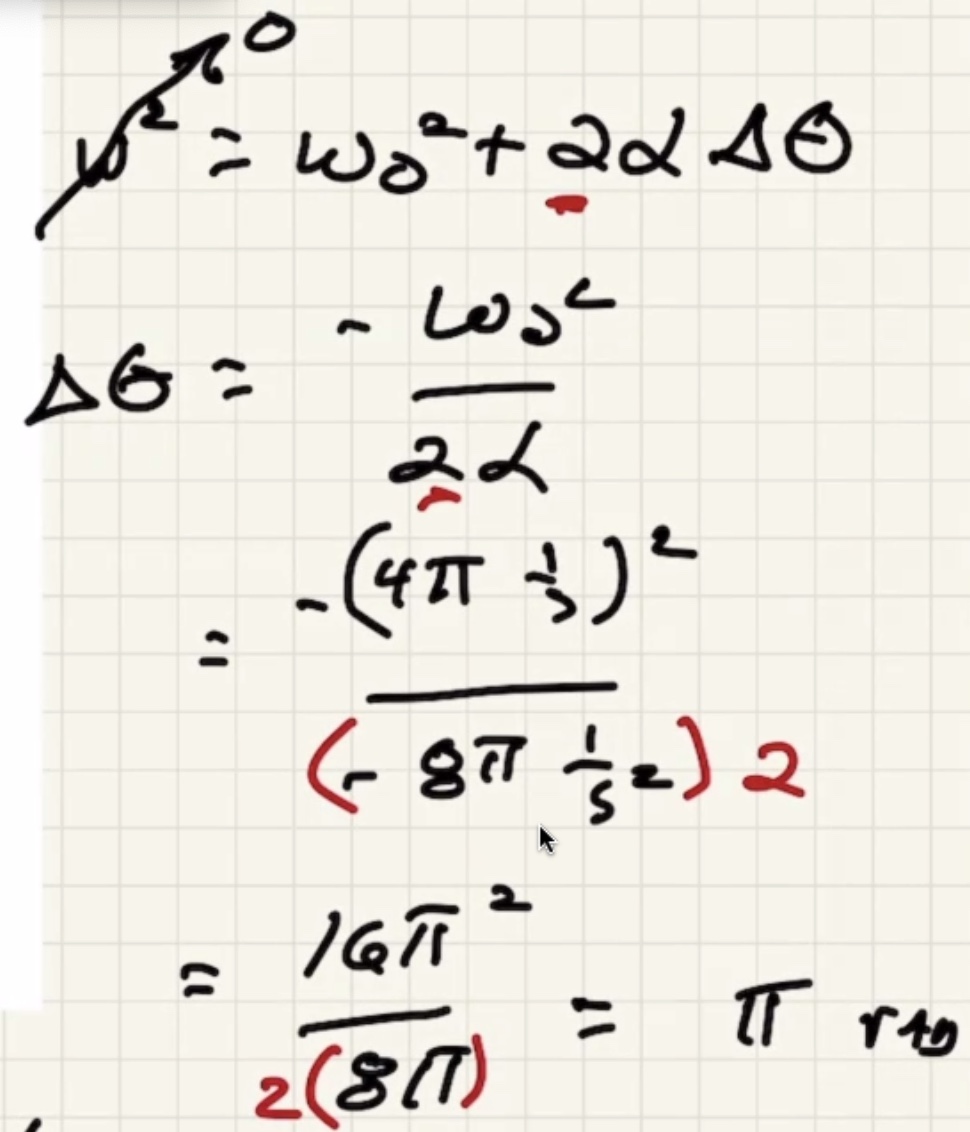 ω² → 0 = ω₀² + 2α Δθ
Δθ = - ω₀² / 2α
= -(4π 1/s)² / (- 8π 1/s²) 2
= 16π² / 2(8π) = π rad